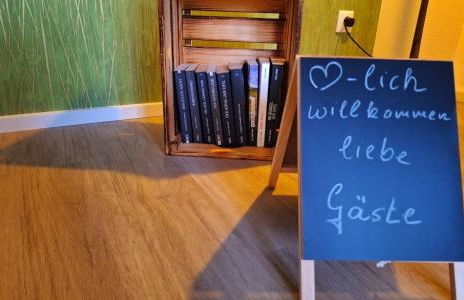 ♡-lich
willkommen
liebe
Gäste